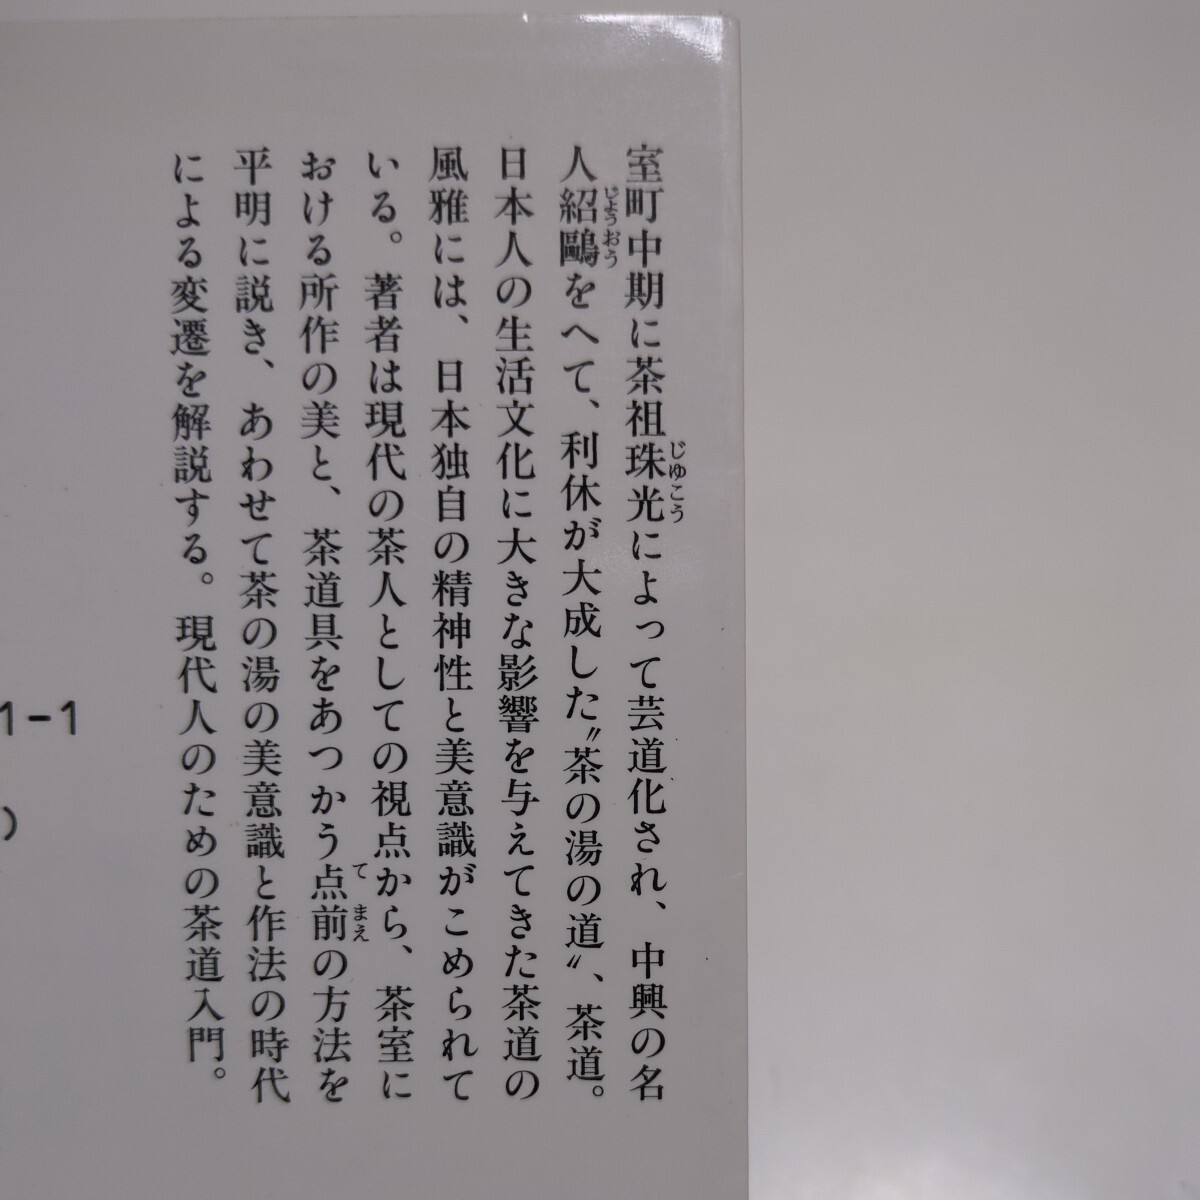 室町中期に茶祖珠光によって芸道化され、中興の名
じゆこう
人紹鷗をへて、利休が大成した〝茶の湯の道〟、茶道。
じょうおう
日本人の生活文化に大きな影響を与えてきた茶道の
風雅には、日本独自の精神性と美意識がこめられて
いる。著者は現代の茶人としての視点から、茶室に
おける所作の美と、茶道具をあつかう点前の方法を
てまえ
平明に説き、あわせて茶の湯の美意識と作法の時代
による変遷を解説する。現代人のための茶道入門。
1-1
)